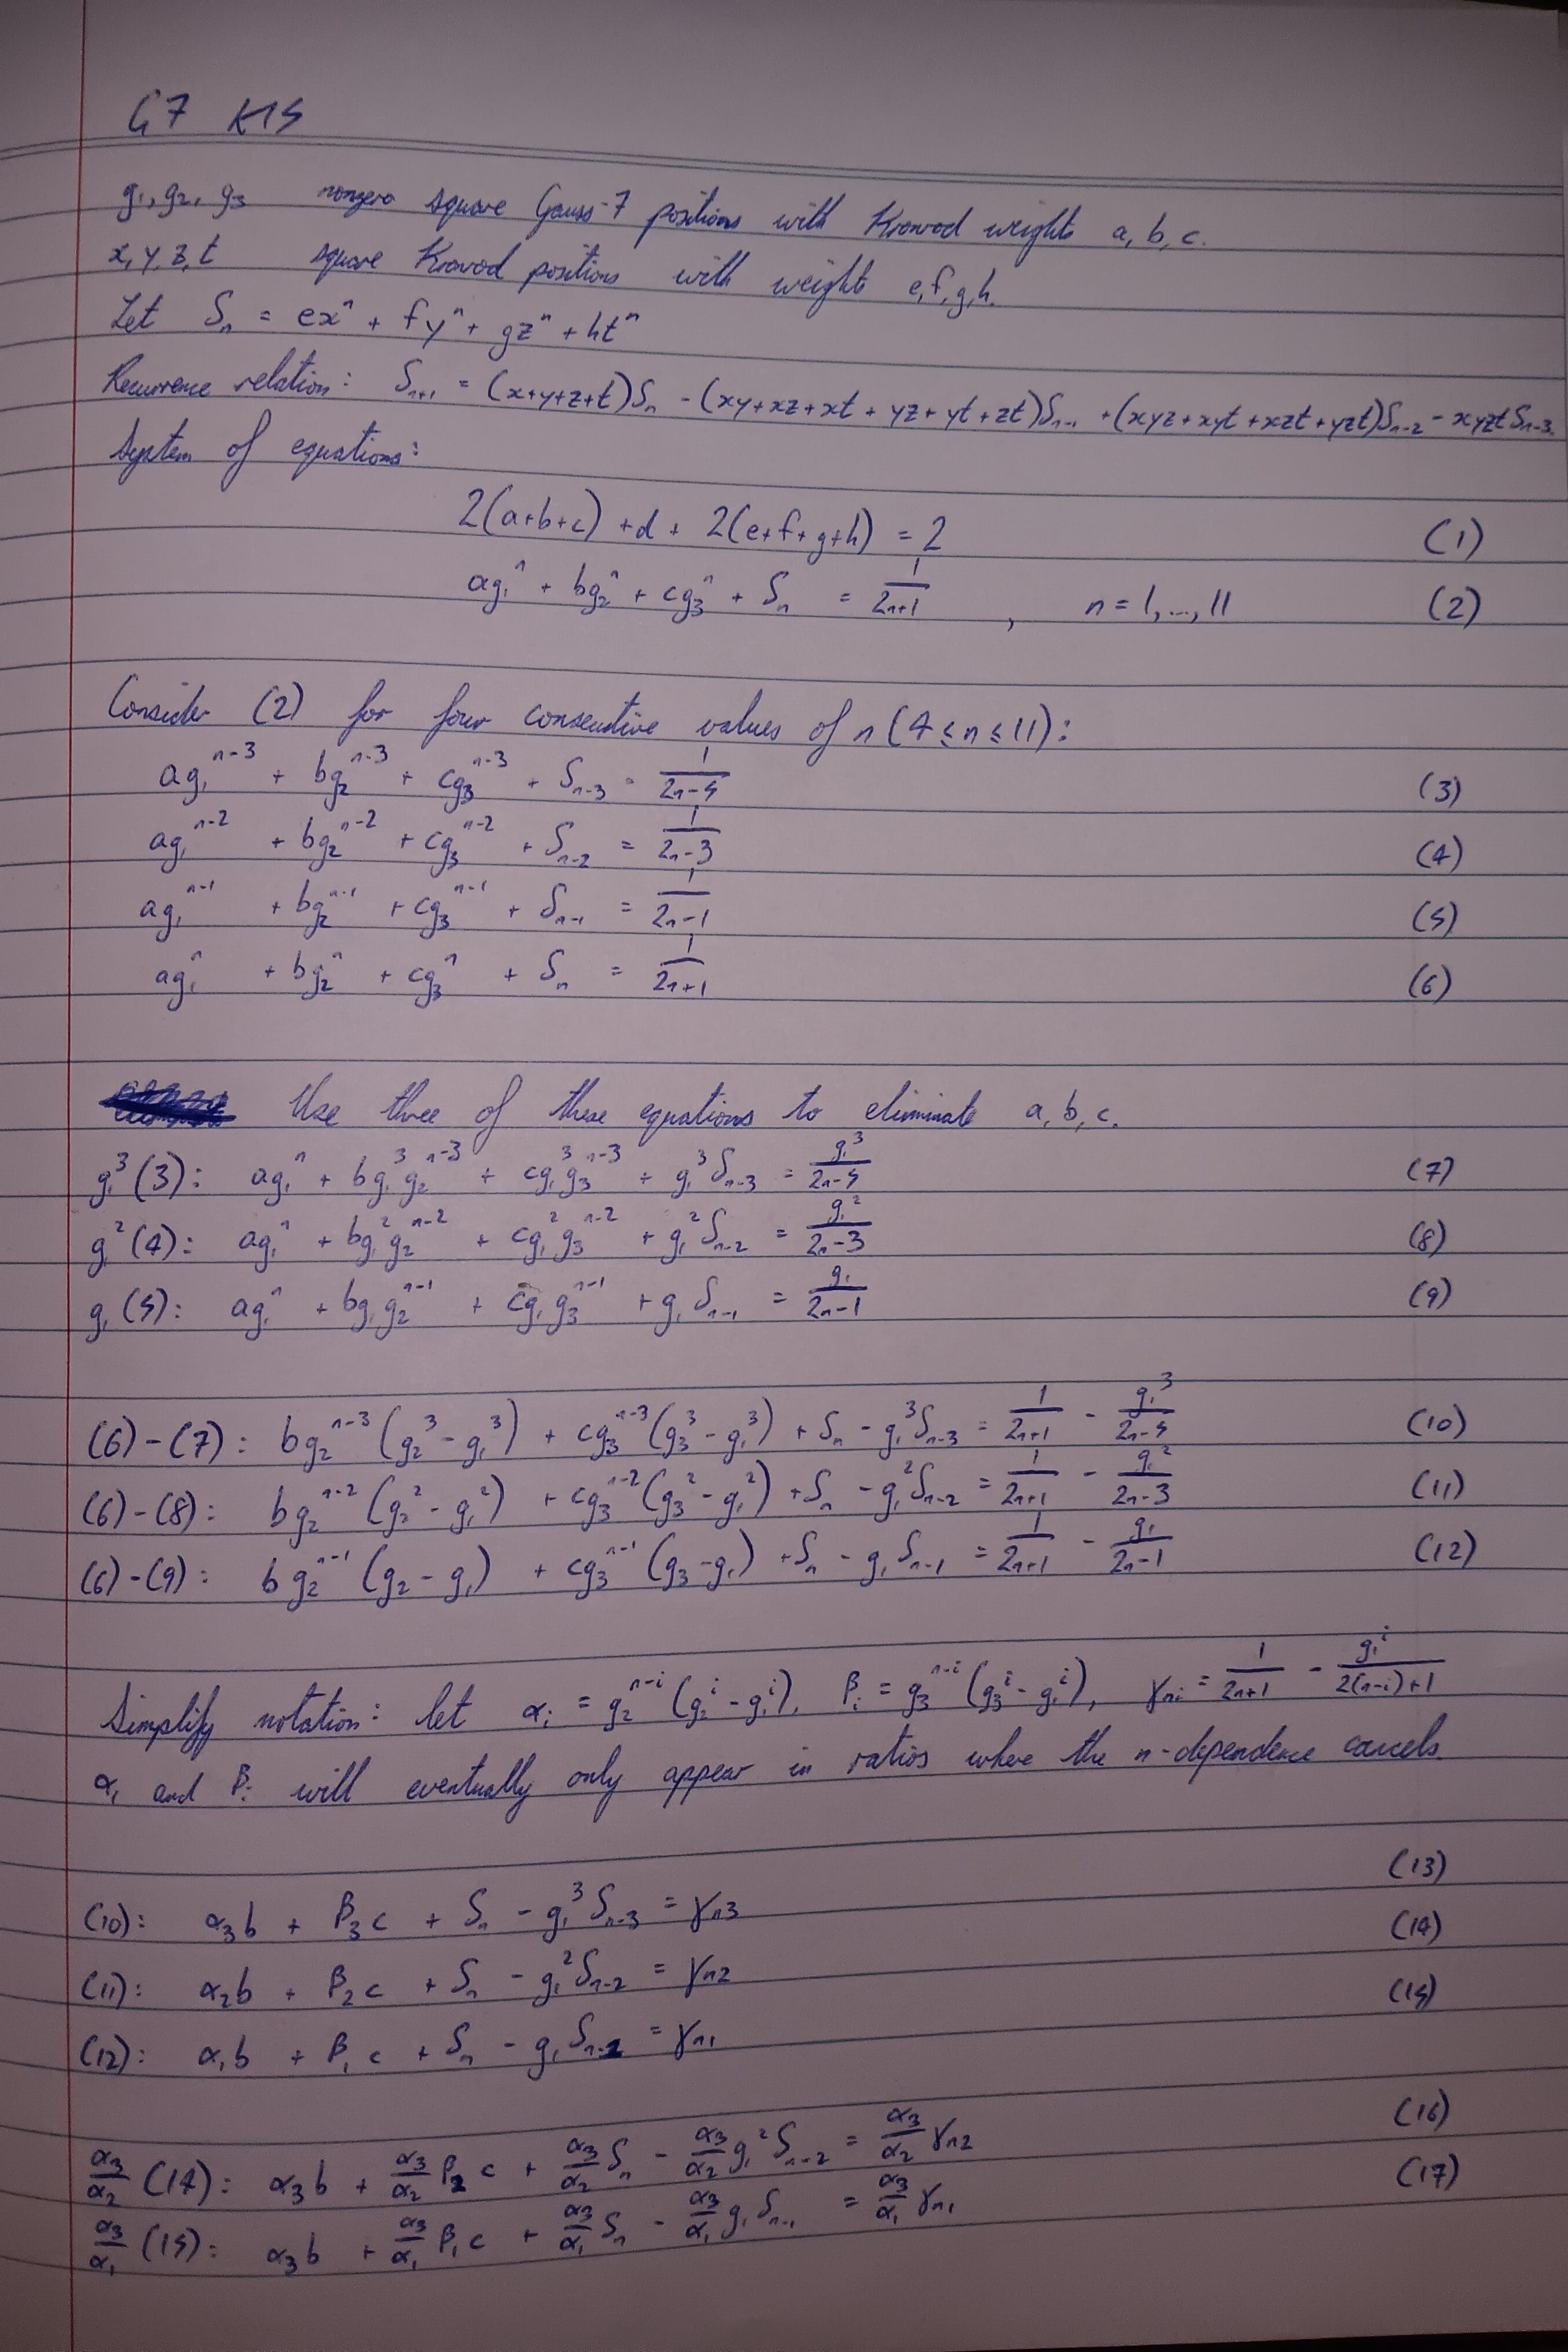 G7 K15
g₁, g₂, g₃ nonzero square Gauss-7 positions with Kronrod weights a, b, c.
x, y, z, t square Kronrod positions with weights e, f, g, h.
Let Sₙ = exⁿ + fyⁿ + gzⁿ + htⁿ
Recurrence relation: Sₙ₊₁ = (x+y+z+t)Sₙ - (xy+xz+xt+yz+yt+zt)Sₙ₋₁ + (xyz+xyt+xzt+yzt)Sₙ₋₂ - xyztSₙ₋₃.
System of equations:
2(a+b+c) + d + 2(e+f+g+h) = 2 (1)
ag₁ⁿ + bg₂ⁿ + cg₃ⁿ + Sₙ = 1/(2n+1), n = 1, ..., 11 (2)
Consider (2) for four consecutive values of n (4 ≤ n ≤ 11):
ag₁ⁿ⁻³ + bg₂ⁿ⁻³ + cg₃ⁿ⁻³ + Sₙ₋₃ = 1/(2n-5) (3)
ag₁ⁿ⁻² + bg₂ⁿ⁻² + cg₃ⁿ⁻² + Sₙ₋₂ = 1/(2n-3) (4)
ag₁ⁿ⁻¹ + bg₂ⁿ⁻¹ + cg₃ⁿ⁻¹ + Sₙ₋₁ = 1/(2n-1) (5)
ag₁ⁿ + bg₂ⁿ + cg₃ⁿ + Sₙ = 1/(2n+1) (6)
Use three of these equations to eliminate a, b, c.
g₁³(3): ag₁ⁿ + bg₁³g₂ⁿ⁻³ + cg₁³g₃ⁿ⁻³ + g₁³Sₙ₋₃ = g₁³/(2n-5) (7)
g₁²(4): ag₁ⁿ + bg₁²g₂ⁿ⁻² + cg₁²g₃ⁿ⁻² + g₁²Sₙ₋₂ = g₁²/(2n-3) (8)
g₁(5): ag₁ⁿ + bg₁g₂ⁿ⁻¹ + cg₁g₃ⁿ⁻¹ + g₁Sₙ₋₁ = g₁/(2n-1) (9)
(6)-(7): bg₂ⁿ⁻³(g₂³ - g₁³) + cg₃ⁿ⁻³(g₃³ - g₁³) + Sₙ - g₁³Sₙ₋₃ = 1/(2n+1) - g₁³/(2n-5) (10)
(6)-(8): bg₂ⁿ⁻²(g₂² - g₁²) + cg₃ⁿ⁻²(g₃² - g₁²) + Sₙ - g₁²Sₙ₋₂ = 1/(2n+1) - g₁²/(2n-3) (11)
(6)-(9): bg₂ⁿ⁻¹(g₂ - g₁) + cg₃ⁿ⁻¹(g₃ - g₁) + Sₙ - g₁Sₙ₋₁ = 1/(2n+1) - g₁/(2n-1) (12)
Simplify notation: let αᵢ = g₂ⁿ⁻ⁱ(g₂ⁱ - g₁ⁱ), βᵢ = g₃ⁿ⁻ⁱ(g₃ⁱ - g₁ⁱ), γₙᵢ = 1/(2n+1) - g₁ⁱ/(2(n-i)+1)
αᵢ and βᵢ will eventually only appear in ratios where the n-dependence cancels.
(10): α₃b + β₃c + Sₙ - g₁³Sₙ₋₃ = γₙ₃ (13)
(11): α₂b + β₂c + Sₙ - g₁²Sₙ₋₂ = γₙ₂ (14)
(12): α₁b + β₁c + Sₙ - g₁Sₙ₋₁ = γₙ₁ (15)
α₃/α₂ (14): α₃b + α₃/α₂ β₂c + α₃/α₂ Sₙ - α₃/α₂ g₁²Sₙ₋₂ = α₃/α₂ γₙ₂ (16)
α₃/α₁ (15): α₃b + α₃/α₁ β₁c + α₃/α₁ Sₙ - α₃/α₁ g₁Sₙ₋₁ = α₃/α₁ γₙ₁ (17)